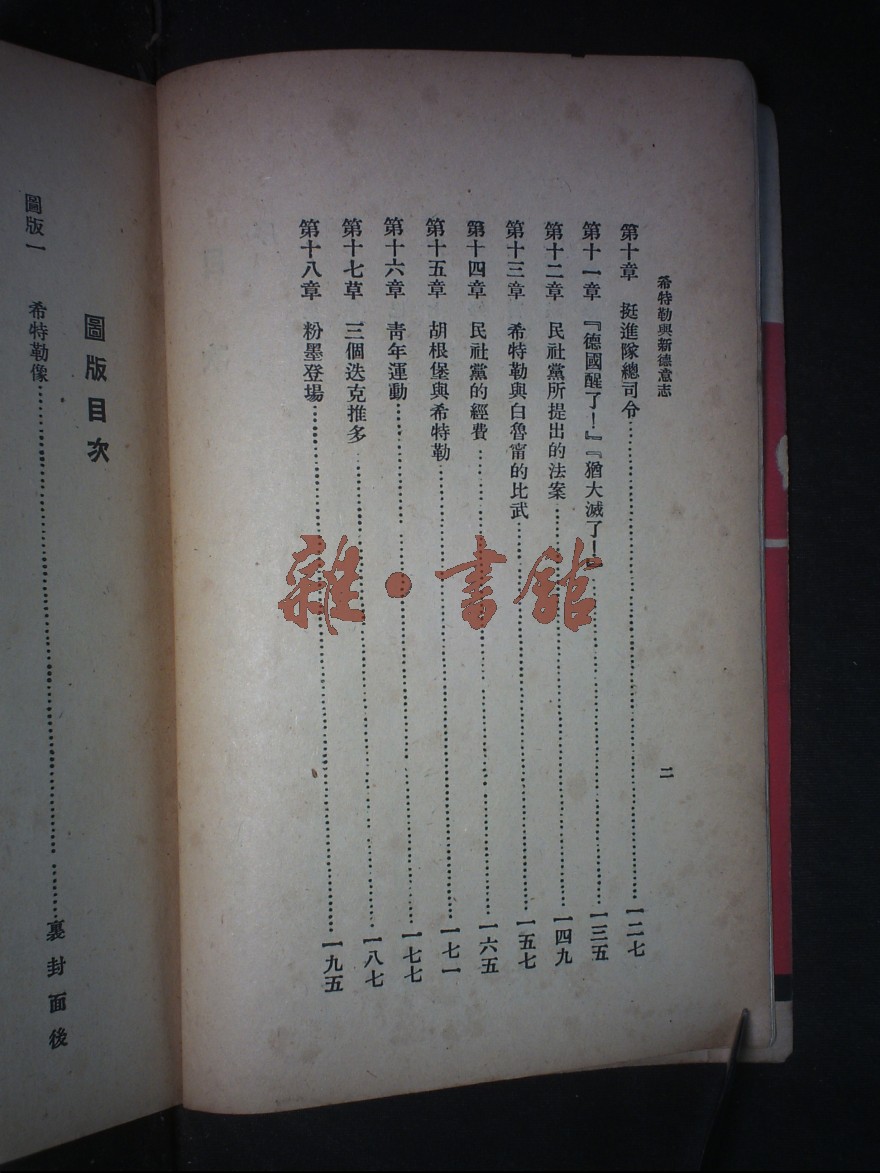 希特勒與新德意志
二
第十章　挺進隊總司令……一二七
第十一章　『德國醒了！』『猶大滅了！』……一三五
第十二章　民社黨所提出的法案……一四九
第十三章　希特勒與白魯甯的比武……一五七
第十四章　民社黨的經費……一六五
第十五章　胡根堡與希特勒……一七一
第十六章　靑年運動……一七七
第十七草　三個迭克推多……一八七
第十八章　粉墨登場……一九五
圖版目次
圖版一　希特勒像……裏封面後
雜·書館